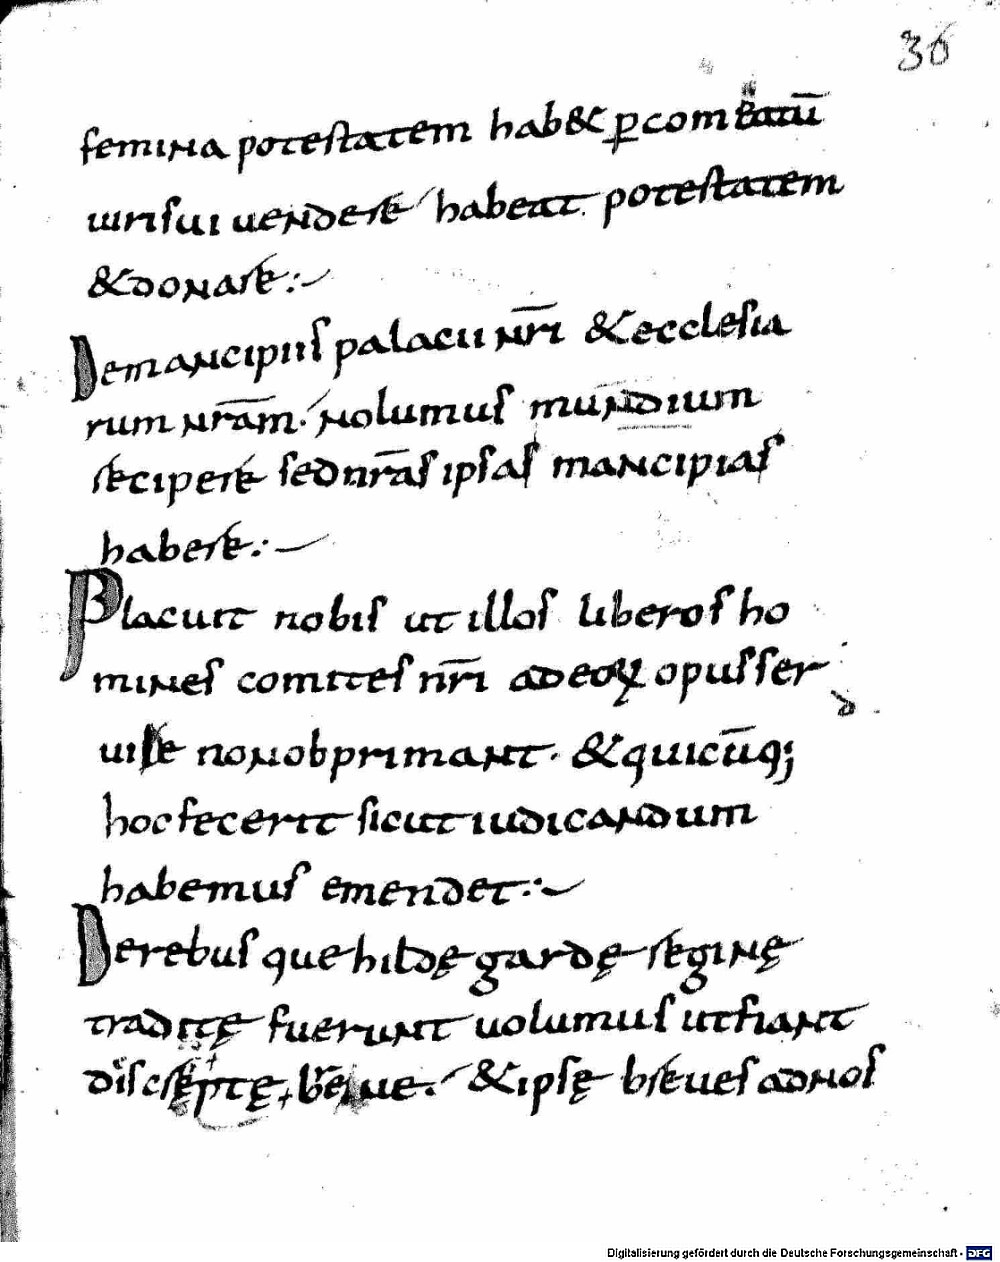 36
femina potestatem hab& p̱ comeatū
uiri sui uendere habeat potestatem
& donare:
De mancipiis palacii nr̄i & ecclesia
rum nr̄arm. nolumus mundium
recipere sed nr̄as ipsas mancipias
habere:
Placuit nobis ut illos liberos ho
mines comites nr̄i ad eoꝝ opus ser
d
uire non obprimant. & quicūq;
hoc fecerit sicut iudicandum
habemus emendet:
De rebus que hildęgardę reginę
traditę fuerunt uolumus ut fiant
discreptę breue. & ipsę breues ad nos
Digitalisierung gefördert durch die Deutsche Forschungsgemeinschaft - DFG